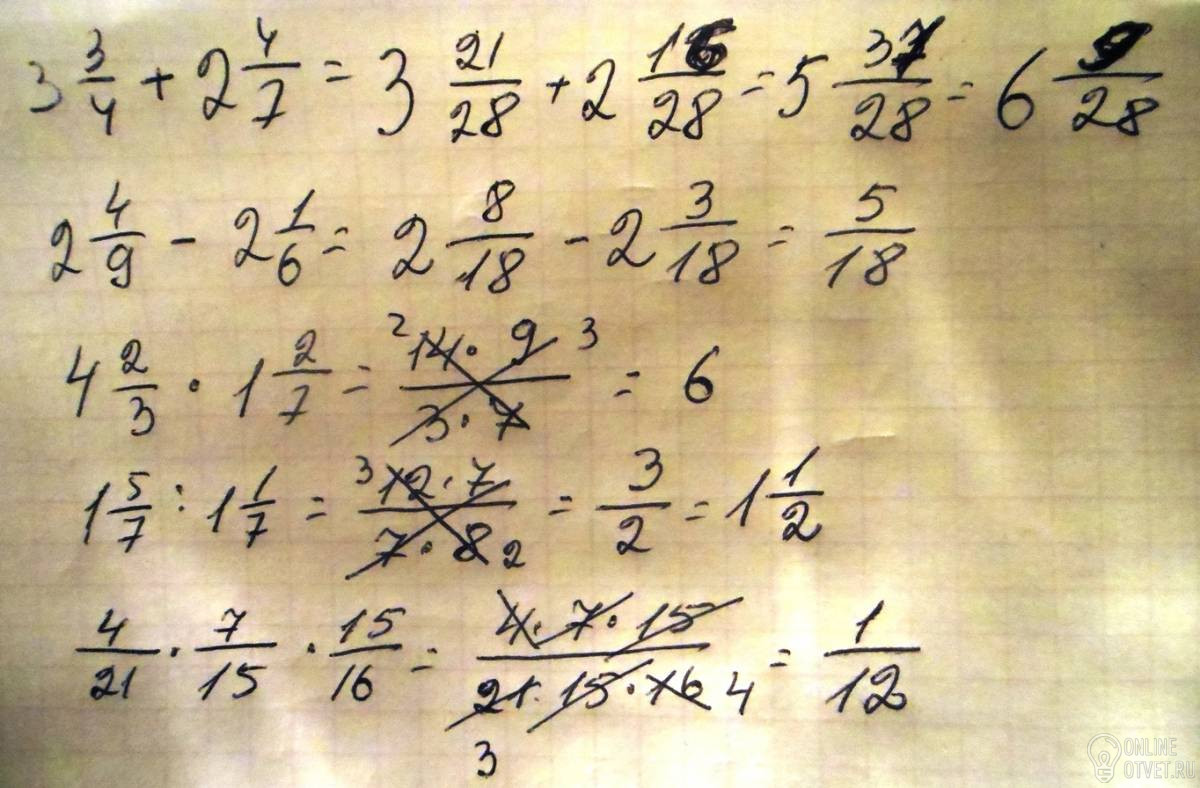 3 3/4 + 2 4/7 = 3 21/28 + 2 16/28 = 5 37/28 = 6 9/28
2 4/9 - 2 1/6 = 2 8/18 - 2 3/18 = 5/18
4 2/3 · 1 2/7 = 2 14 · 9 3 / 3 · 7 = 6
1 5/7 : 1 1/7 = 3 12 · 7 / 7 · 8 2 = 3/2 = 1 1/2
4/21 · 7/15 · 15/16 = 4 · 7 · 15 / 21 · 15 · 16 4 = 1/12
3
ONLINE
OTVET.RU